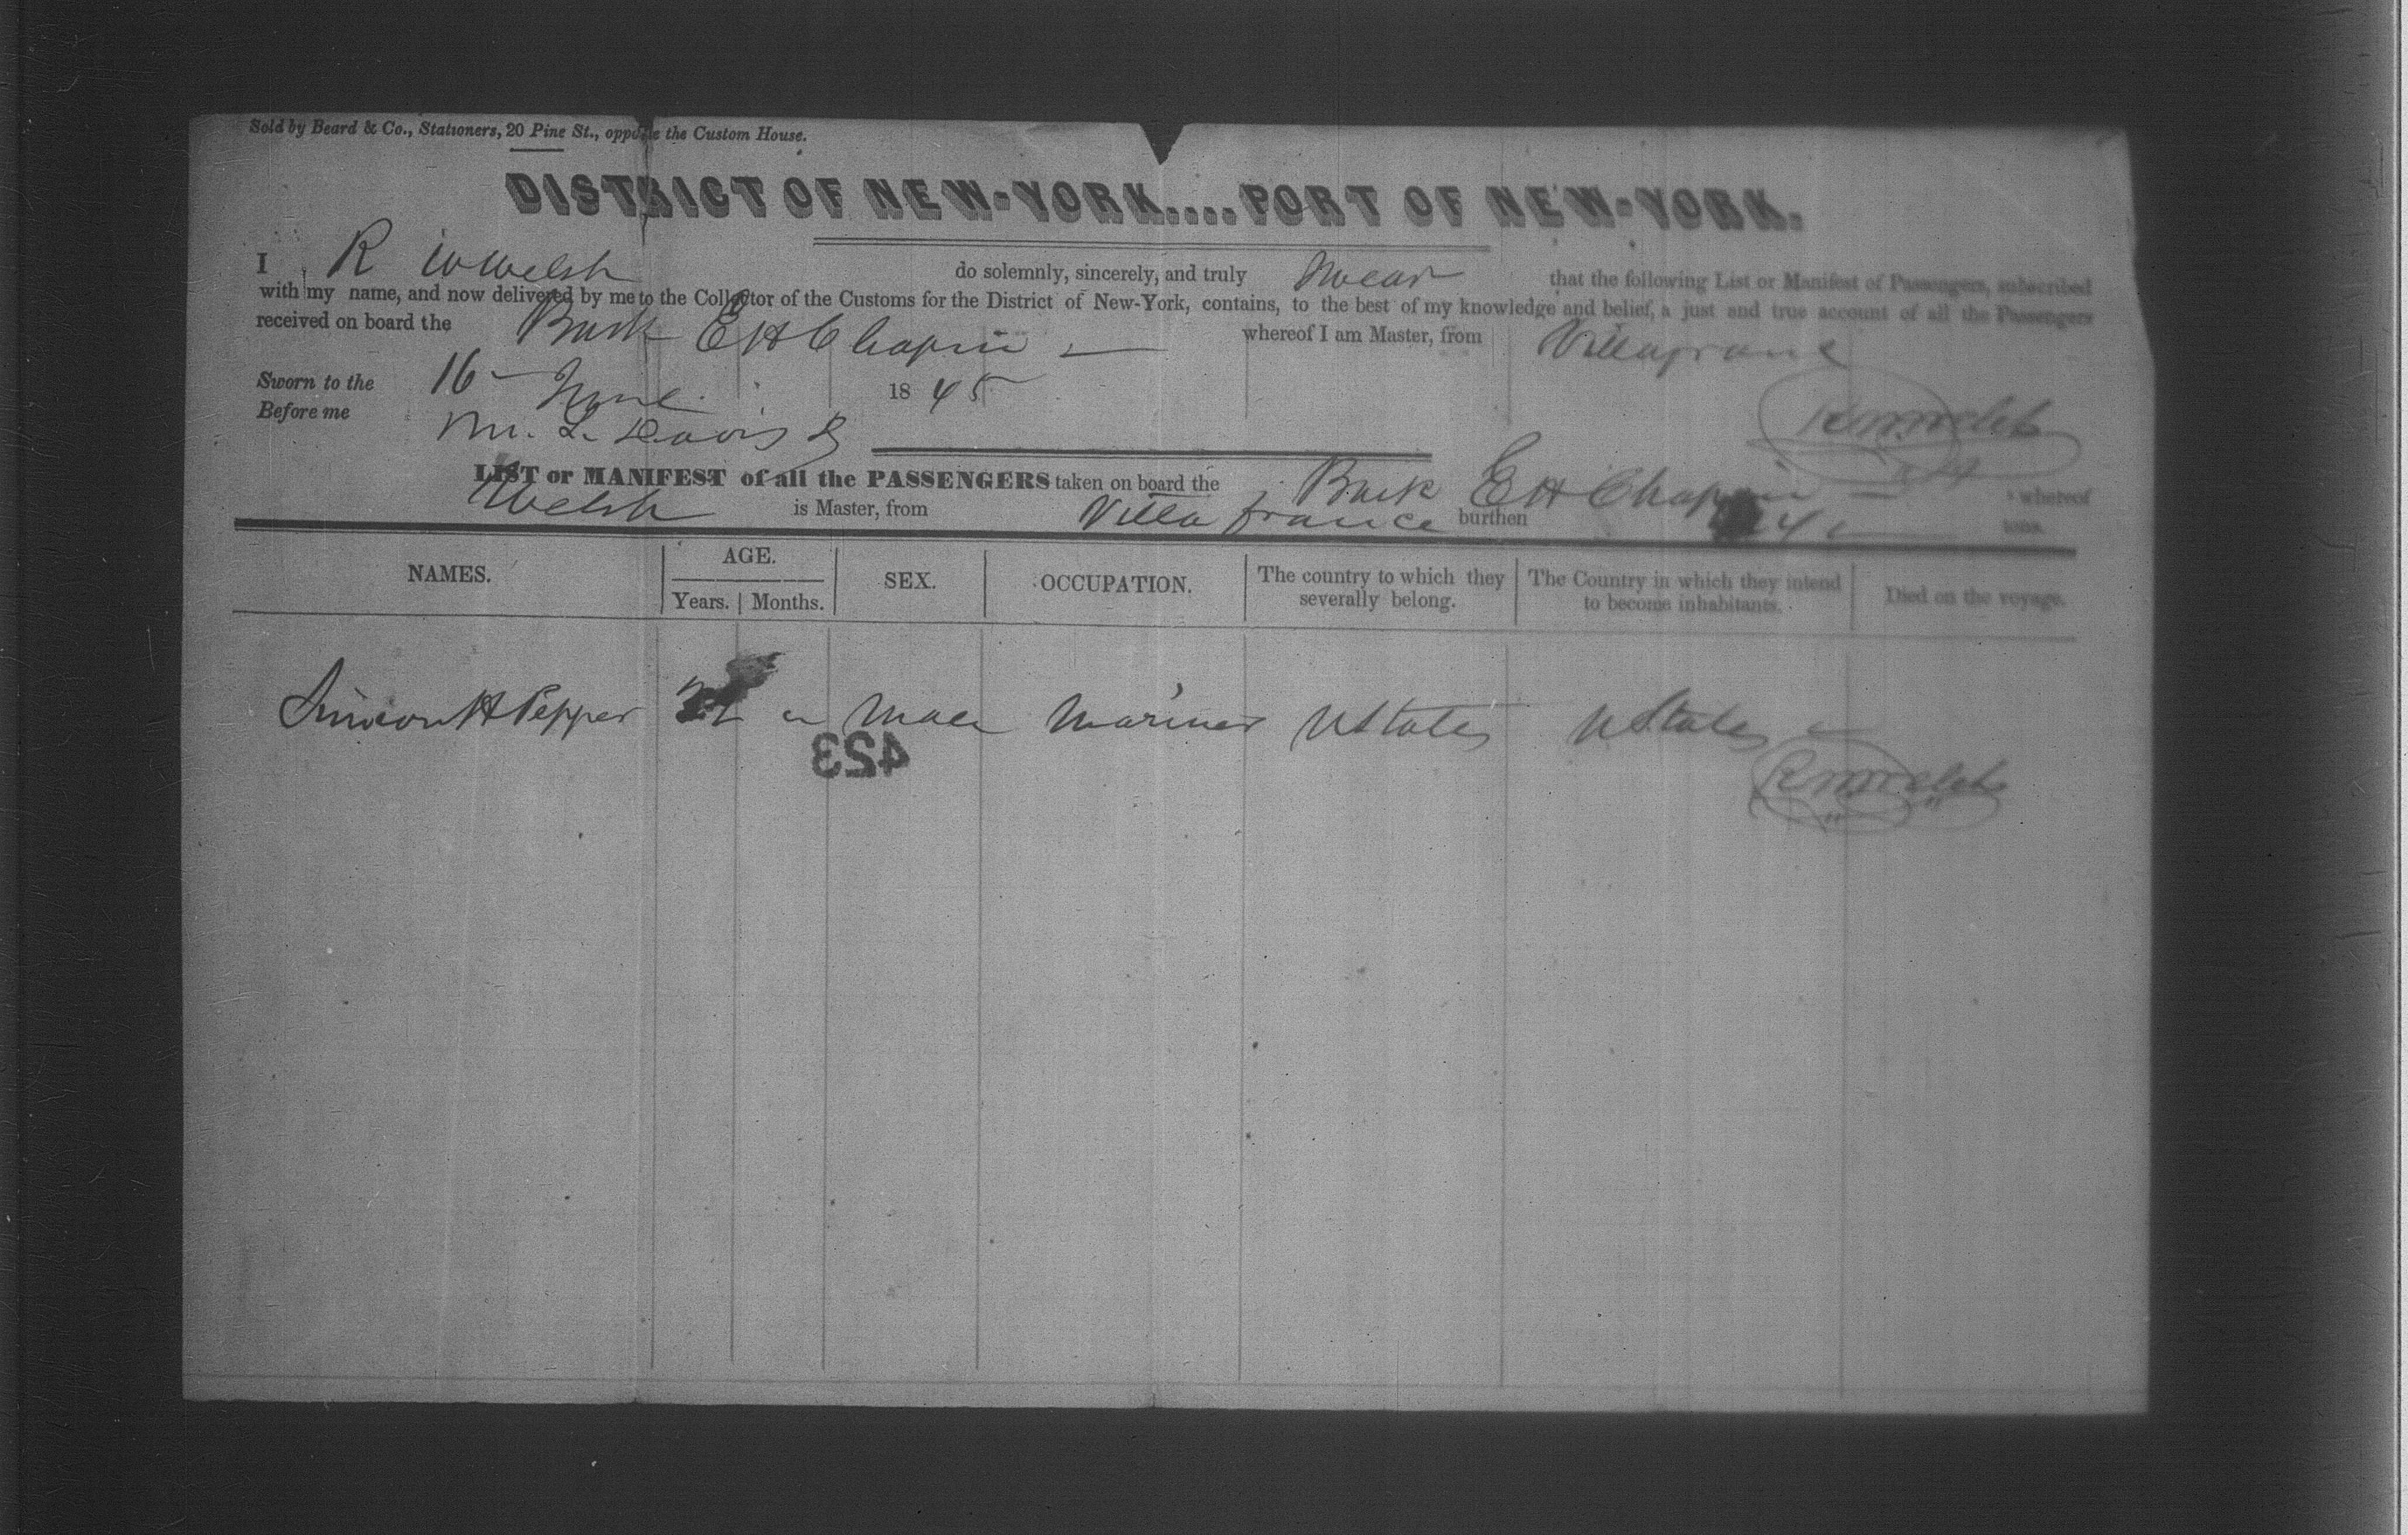 Sold by Beard & Co., Stationers, 20 Pine St., opposite the Custom House.
DISTRICT OF NEW-YORK....PORT OF NEW-YORK.
I R W Welsh do solemnly, sincerely, and truly Swear that the following List or Manifest of Passengers, subscribed
with my name, and now delivered by me to the Collector of the Customs for the District of New-York, contains, to the best of my knowledge and belief, a just and true account of all the Passengers
received on board the Bark E H Chapin whereof I am Master, from Villafranc
Sworn to the 16 1845
Before me L. Davis
R W Welsh
LIST or MANIFEST of all the PASSENGERS taken on board the Bark E H Chapin whereof
Welsh is Master, from Villa france burthen tons.
NAMES. AGE. Years. Months. SEX. OCCUPATION. The country to which they severally belong. The Country in which they intend to become inhabitants. Died on the voyage.
Simeon H Pepper Male Mariner U States U States
423
R W Welsh